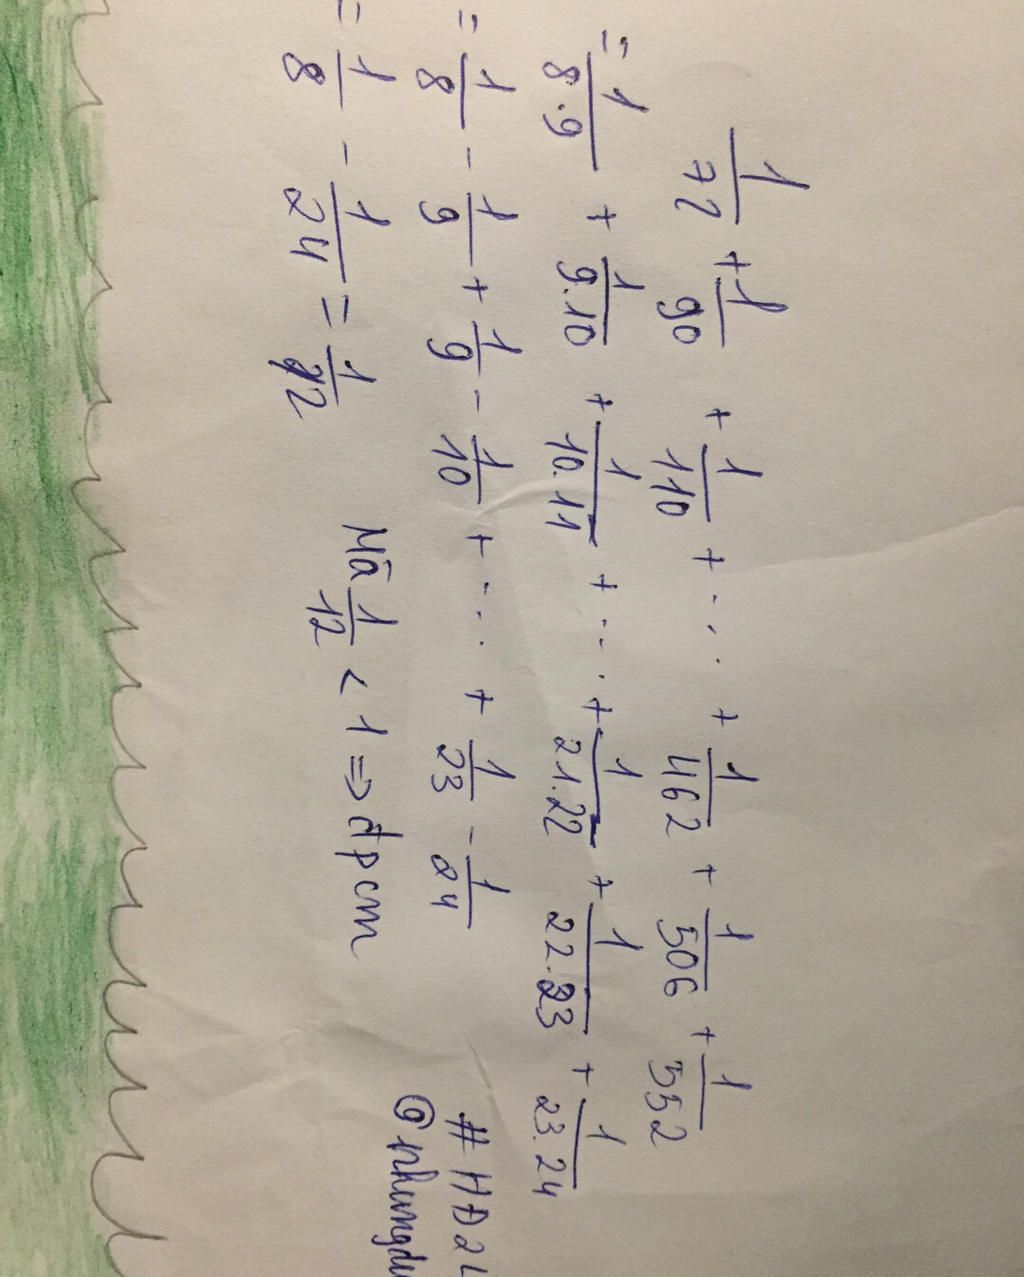 1/72 + 1/90 + 1/110 + ... + 1/462 + 1/506 + 1/552
= 1/8.9 + 1/9.10 + 1/10.11 + ... + 1/21.22 + 1/22.23 + 1/23.24
= 1/8 - 1/9 + 1/9 - 1/10 + ... + 1/23 - 1/24
= 1/8 - 1/24 = 1/12 Mà 1/12 < 1 => đpcm
#HĐ2L
@nhungdu